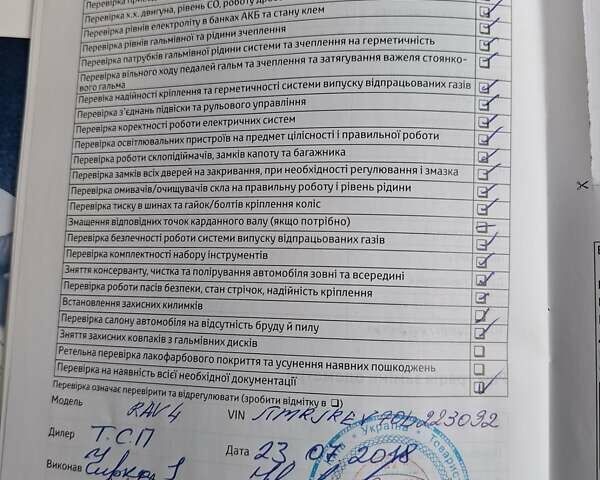 Перевірка х.х. двигуна, рівень СО, роботу
Перевірка рівнів електроліту в банках АКБ та стану клем
Перевірка рівнів гальмівної та рідини зчеплення
Перевірка патрубків гальмівної рідини системи та зчеплення на герметичність
Перевірка вільного ходу педалей гальм та зчеплення та затягування важеля стоянко-
вого гальма
Перевіка надійності кріплення та герметичності системи випуску відпрацьованих газів
Перевірка з'єднань підвіски та рульового управління
Перевірка коректності роботи електричних систем
Перевірка освітлювальних пристроїв на предмет цілісності і правильної роботи
Перевірка роботи склопідіймачів, замків капоту та багажника
Перевірка замків всіх дверей на закривання, при необхідності регулювання і змазка
Перевірка омивачів/очищувачів скла на правильну роботу і рівень рідини
Перевірка тиску в шинах та гайок/болтів кріплення коліс
Змащення відповідних точок карданного валу (якщо потрібно)
Перевірка безпечності роботи системи випуску відпрацьованих газів
Перевірка комплектності набору інструментів
Зняття консерванту, чистка та полірування автомобіля зовні та всередині
Перевірка роботи пасів безпеки, стан стрічок, надійність кріплення
Встановлення захисних килимків
Перевірка салону автомобіля на відсутність бруду й пилу
Зняття захисних ковпаків з гальмівних дисків
Ретельна перевірка лакофарбового покриття та усунення наявних пошкоджень
Перевірка на наявність всієї необхідної документації
Перевірка означає перевірити та відрегулювати (зробити відмітку в ❑)
Модель RAV 4 VIN
Дилер Т.С.П Дата 23 07 2018
Виконав